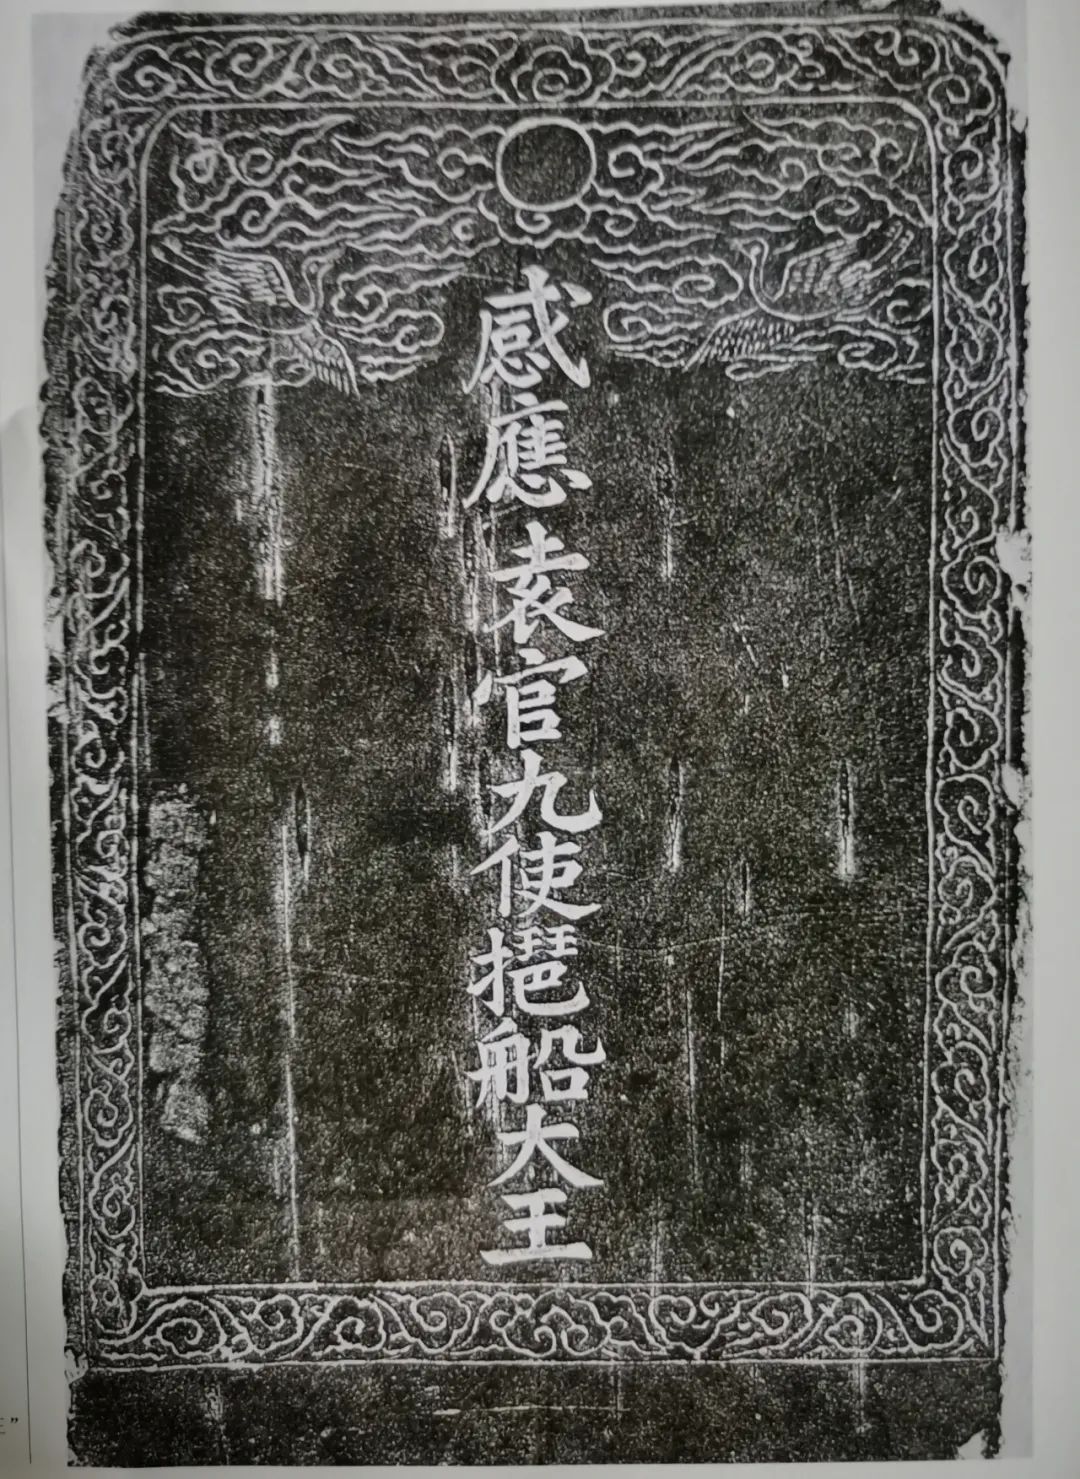 感應袁官九使𢺞船大王
”